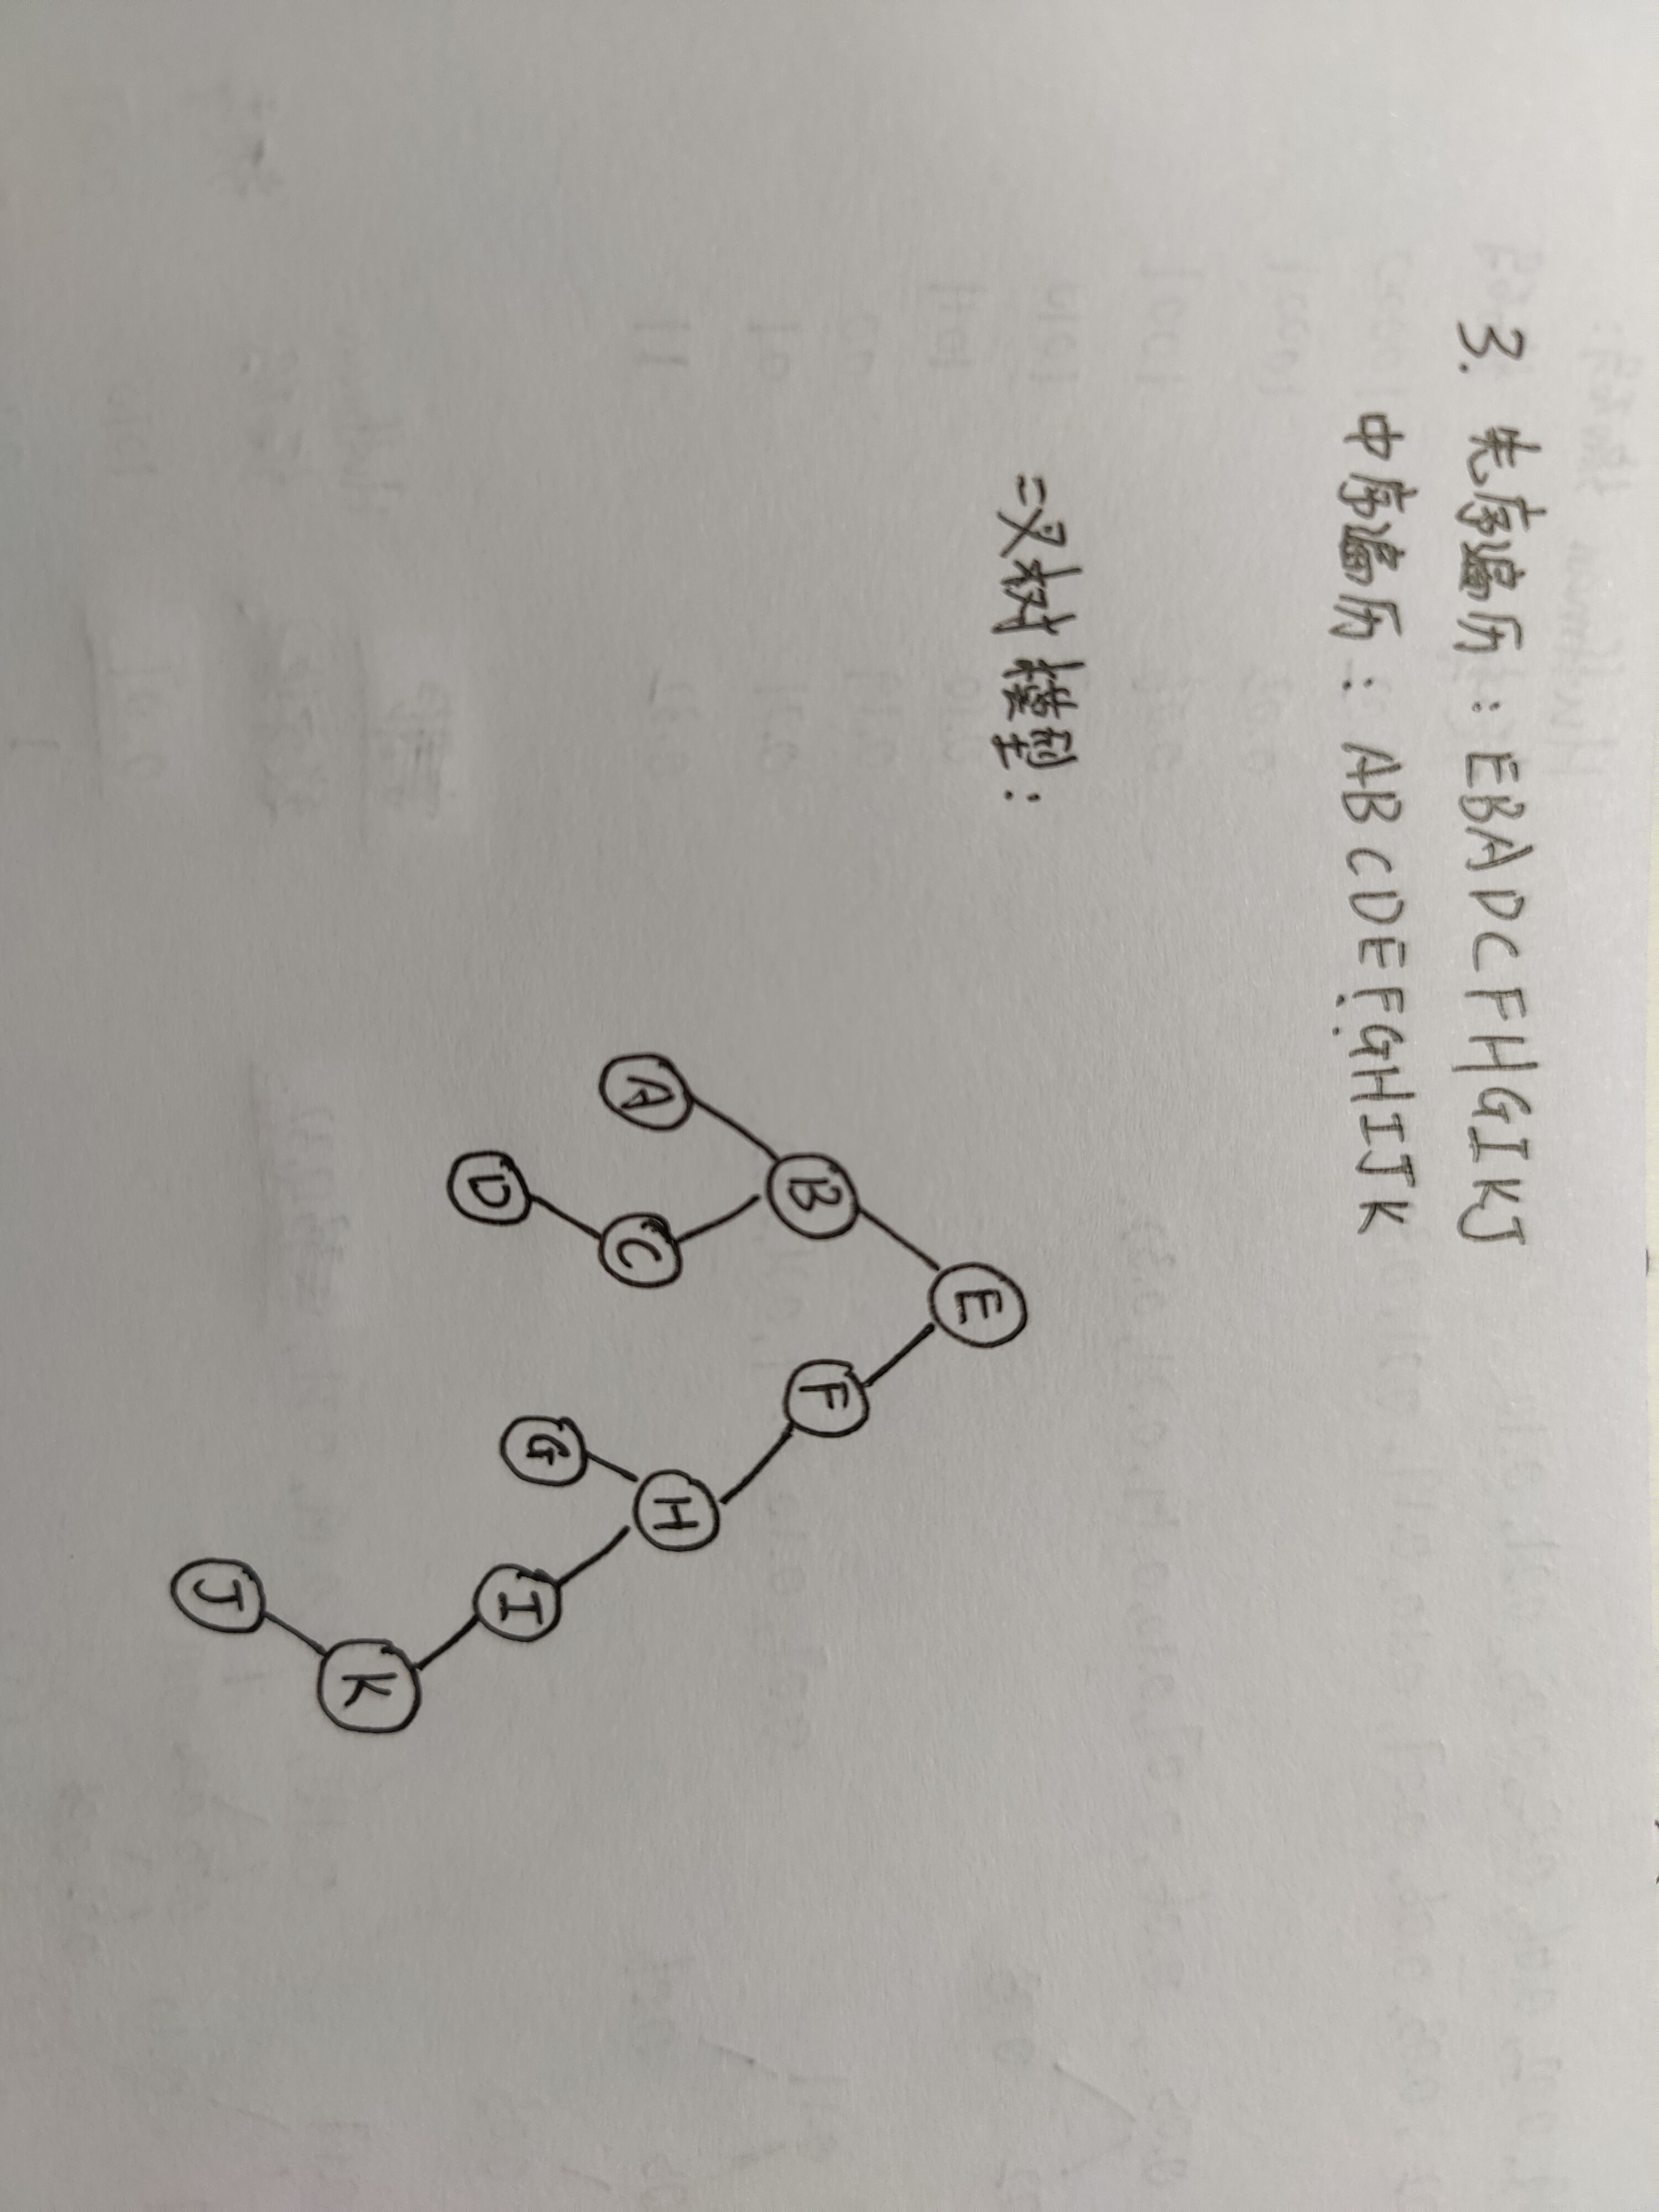 3. 先序遍历：EBADCFHGIKJ
中序遍历：ABCDEFGHIJK
二叉树模型：
E
B F
A C H
D G I
K
J